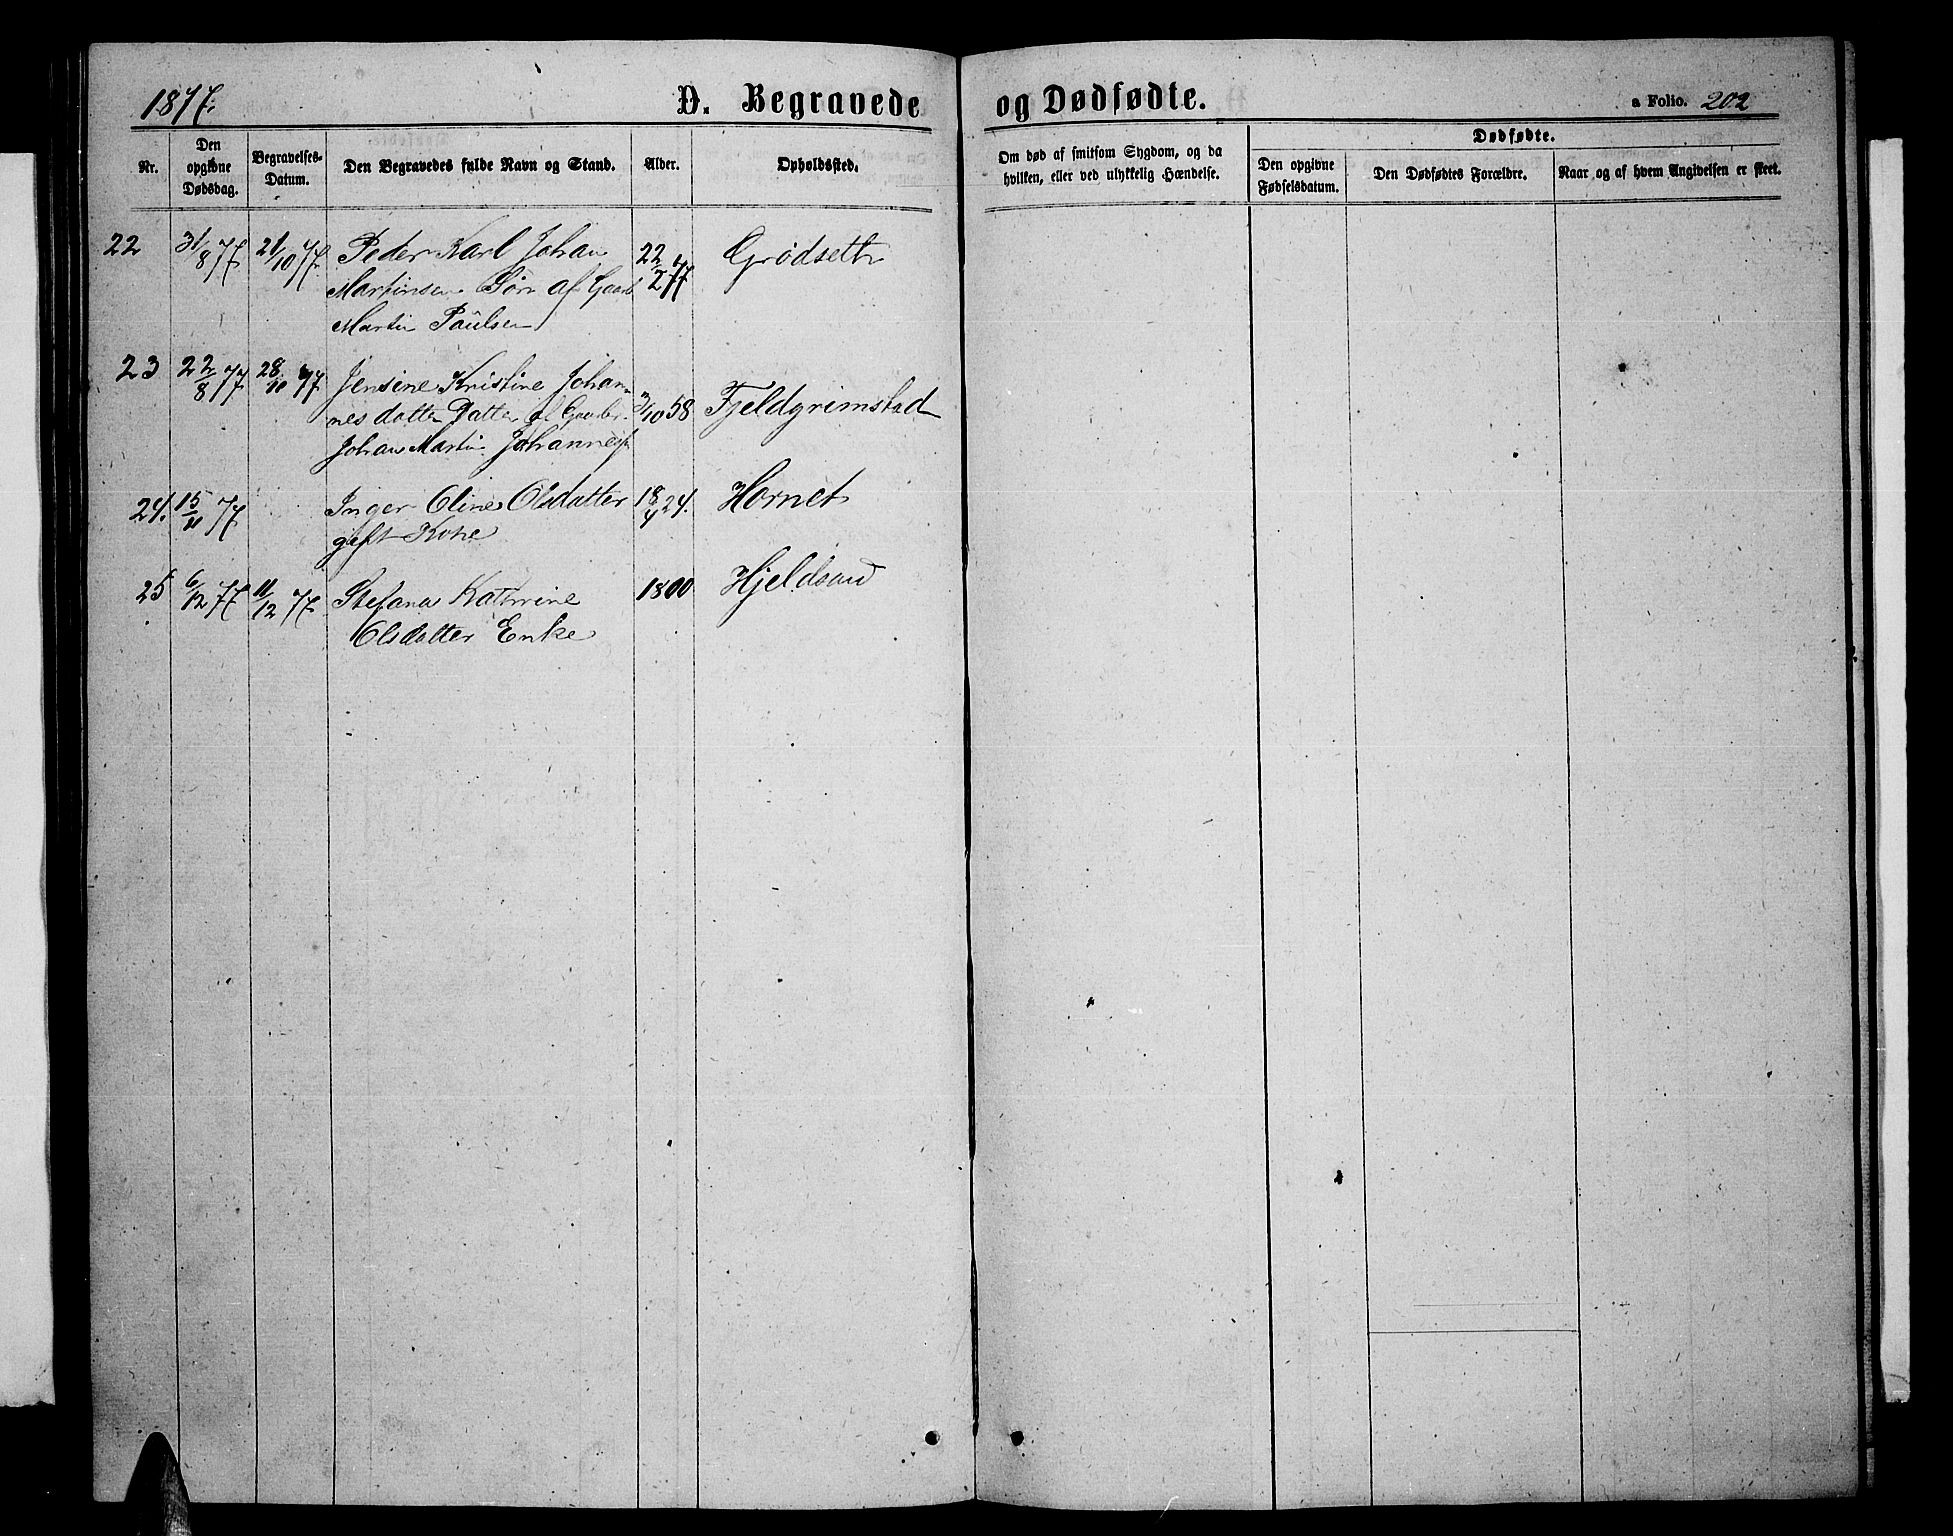 1877.
D. Begravede og Dødfødte.
a Folio. 202
Nr.
Den opgivne Dødsdag.
Begravelses-Datum.
Den Begravedes fulde Navn og Stand.
Alder.
Opholdssted.
Om død af smitsom Sygdom, og da
hvilken, eller ved ulykkelig Hændelse.
Dødfødte.
Den opgivne
Fødselsdatum.
Den Dødfødtes Forældre.
Naar og af hvem Angivelsen er skeet.
22 31/8 77 21/10 77 Peder Karl Johan 22/2 77 Grødseth
Martinsen Søn af Gaarb
Martin Paulsen
23 22/8 77 28/10 77 Jensine Kristine Johan-
nesdatter Datter af Gaarbr 3/10 58 Fjeldgrimstad
Johan Martin Johannes
24. 15/11 77 Inger Oline Olsdatter 18/4 24. Hornet
gift Kone
25 6/12 77 11/12 77 Stefana Kathrine 1800 Hjeldsand
Olsdatter Enke